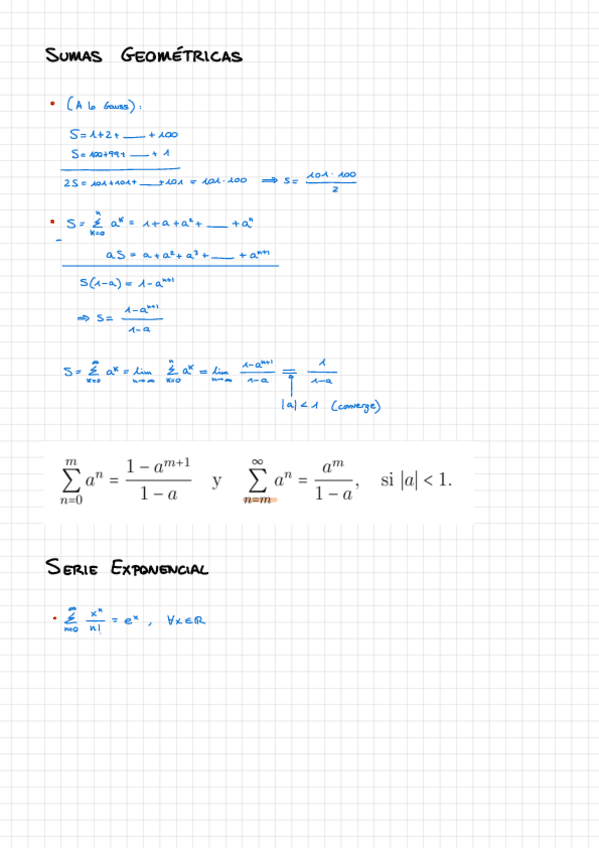 SUMAS GEOMÉTRICAS
• (A lo Gauss):
S = 1+2+ __ + 100
S = 100+99+ __ + 1
2S = 101+101+ __ +101 = 101·100 ⟹ S = (101·100)/2
• S = ∑_{k=0}^{n} a^k = 1+a+a²+ __ +a^n
- aS = a+a²+a³+ __ + a^{n+1}
S(1-a) = 1-a^{n+1}
⟹ S = (1-a^{n+1})/(1-a)
S = ∑_{k=0}^{∞} a^k = lim_{n→∞} ∑_{k=0}^{n} a^k = lim_{n→∞} (1-a^{n+1})/(1-a) = 1/(1-a)
|a| < 1 (converge)
∑_{n=0}^{m} a^n = (1 − a^{m+1})/(1 − a) y ∑_{n=m}^{∞} a^n = a^m/(1 − a), si |a| < 1.
SERIE EXPONENCIAL
• ∑_{n=0}^{∞} x^n/n! = e^x , ∀x∈ℝ